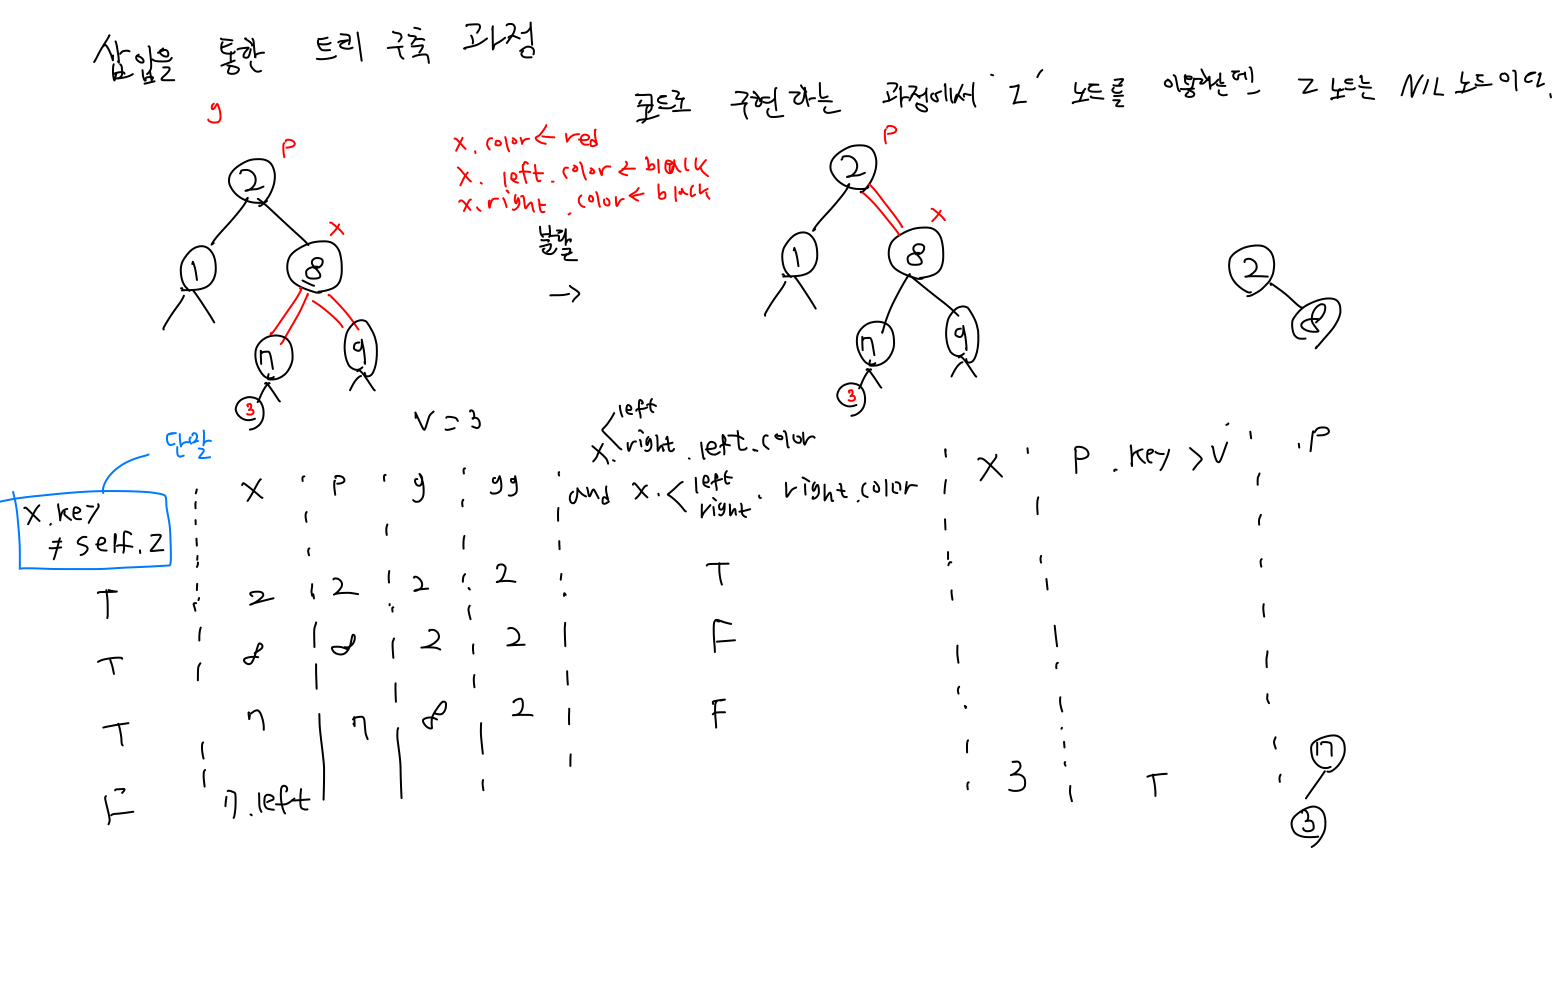 삽입을 통한 트리 구축 과정
코드로 구현하는 과정에서 'Z' 노드를 이용하는데 Z 노드는 NIL 노드이다.
g
P
2
1
X
8
7
9
3
x.color ← red
x. left.color ← black
x.right .color ← black
분할
→
P
2
1
X
8
7
9
3
2
8
V = 3
단말
x.key
≠ self.Z
X P g gg
x. < left right . left.color
and x. < left right . right.color
X P .key > V .P
T 2 2 2 2 T
T 8 8 2 2 F
T 7 7 8 2 F
F 7.left 3 T
7
3